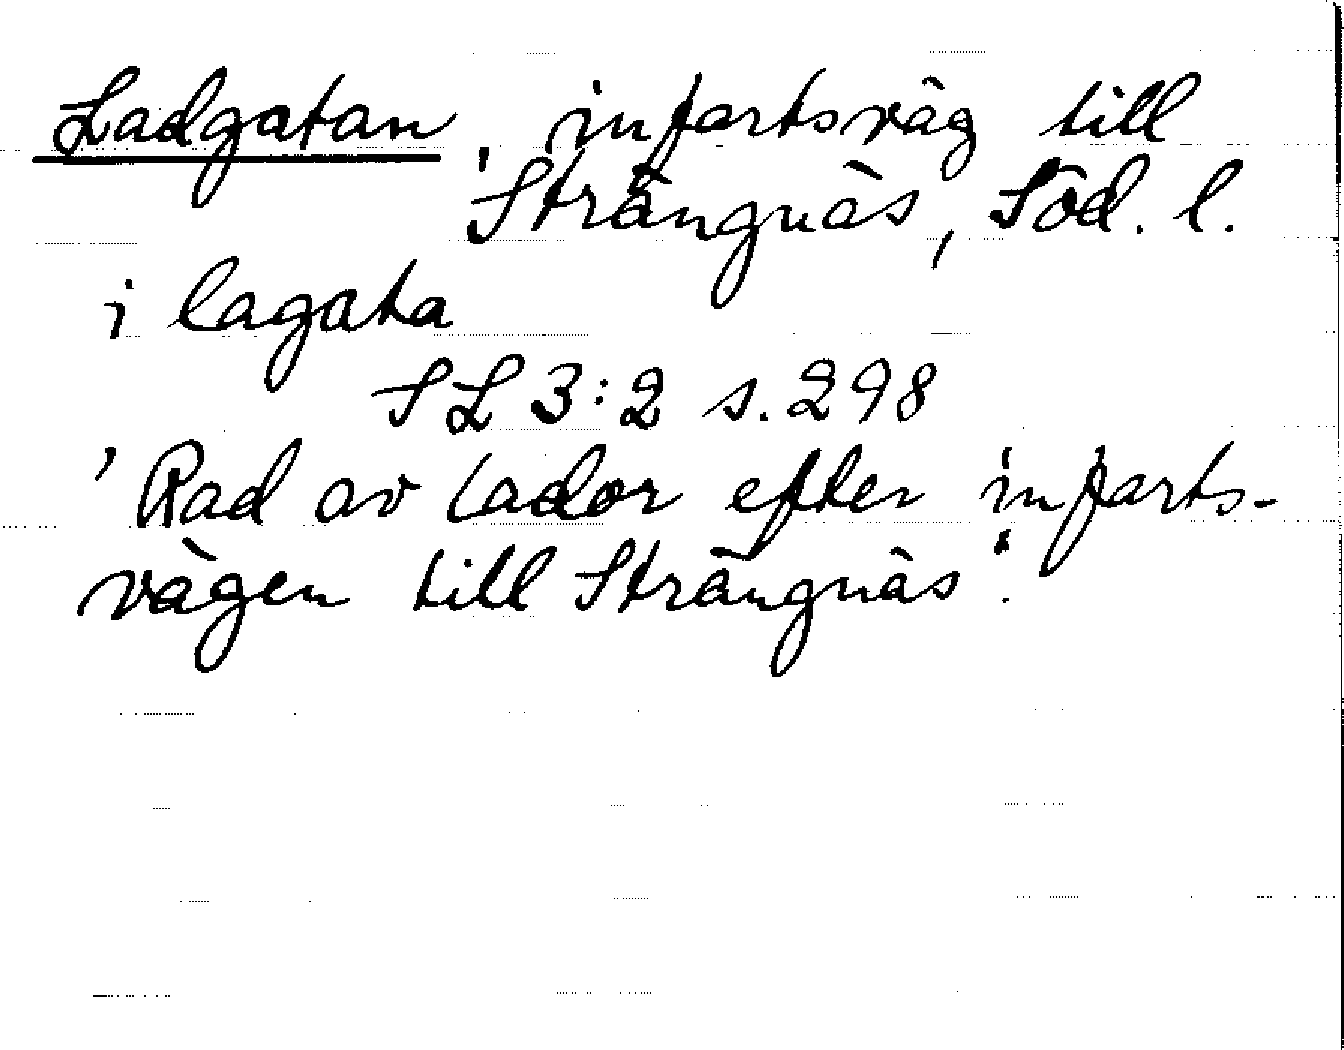 Ladgatan infartsväg till
Strängnäs, Söd. l.
i lagata
SL 3:2 s. 298
'Rad av lador efter infarts-
vägen till Strängnäs'.